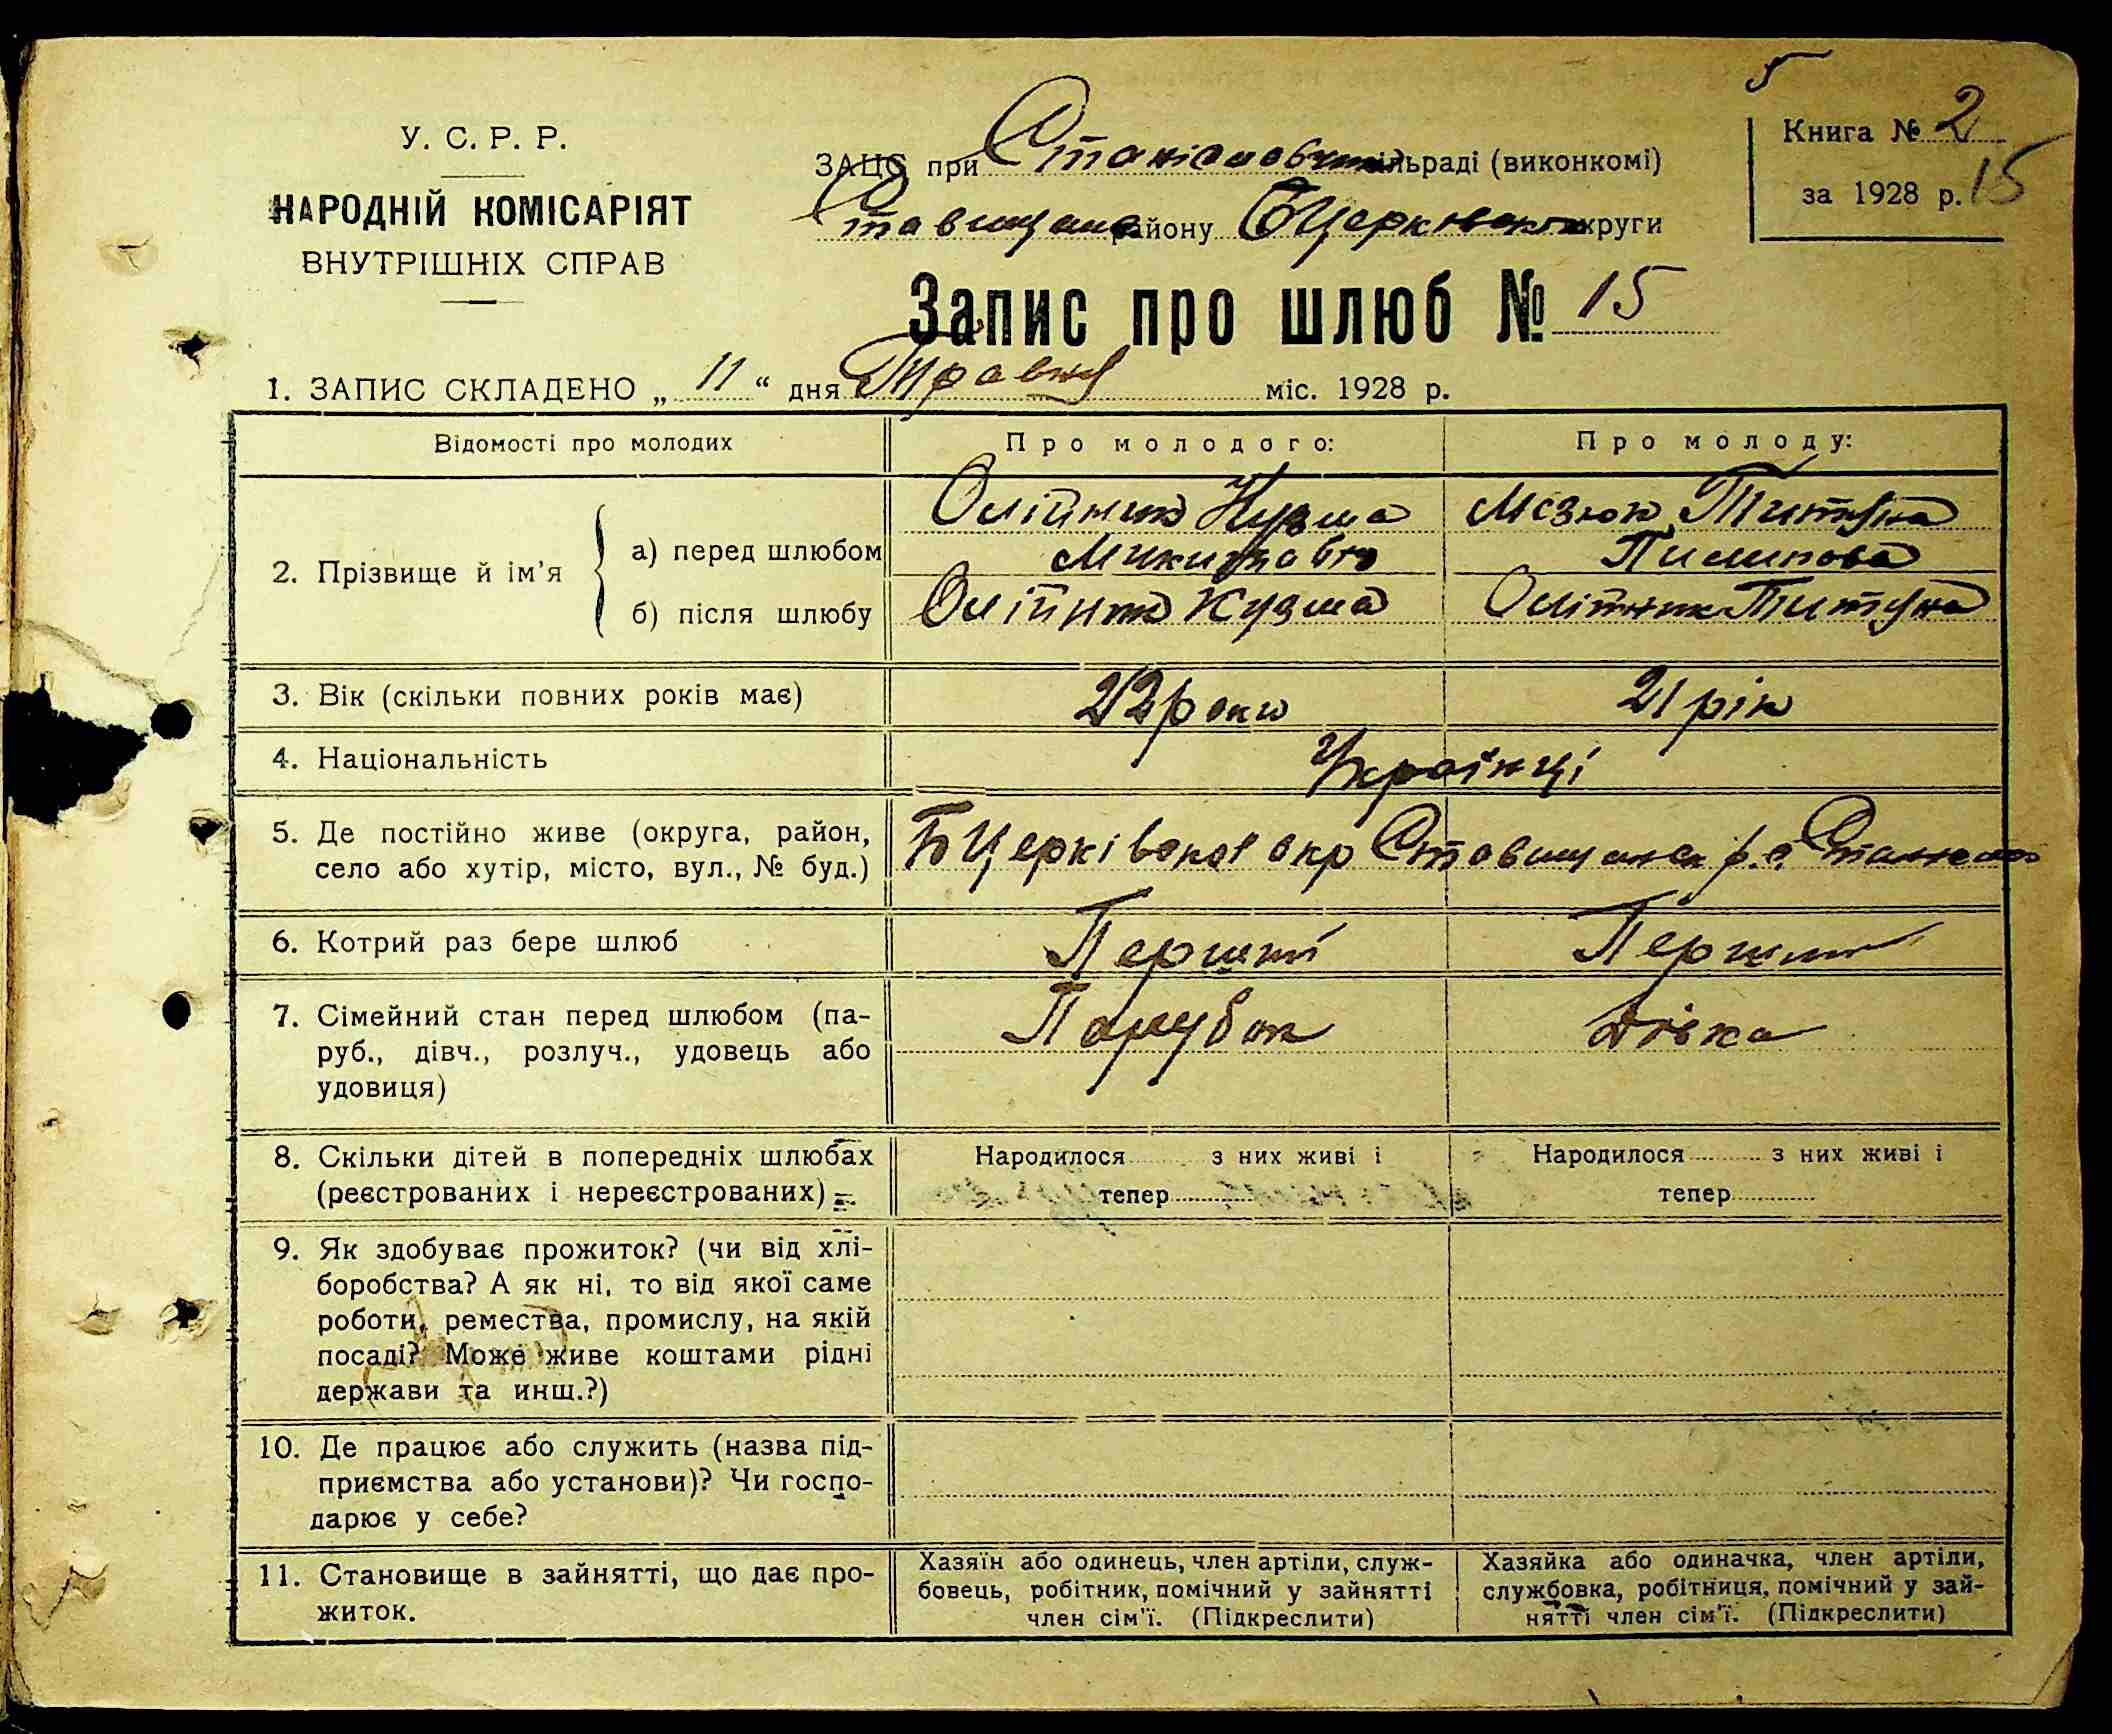 5
У. С. Р. Р.
НАРОДНІЙ КОМІСАРІЯТ
ВНУТРІШНІХ СПРАВ
ЗАЦС при сільраді (виконкомі)
району БЦерківської округи
Книга № 2
за 1928 р. 15
Запис про шлюб № 15
1. ЗАПИС СКЛАДЕНО „ 11 “ дня Травня міс. 1928 р.
Відомості про молодих
Про молодого:
Про молоду:
2. Прізвище й ім’я
а) перед шлюбом
Олійник Кузма
Микитович
Мазюк
Пилипова
б) після шлюбу
Олійник Кузма
Олійник
3. Вік (скільки повних років має)
22 роки
21 рік
4. Національність
Українці
5. Де постійно живе (округа, район,
село або хутір, місто, вул., № буд.)
БЦерківської окр Ставищанськ р. с.
6. Котрий раз бере шлюб
Перший
Перший
7. Сімейний стан перед шлюбом (па-
руб., дівч., розлуч., удовець або
удовиця)
Парубок
Дівка
8. Скільки дітей в попередніх шлюбах
(реєстрованих і нереєстрованих)
Народилося ........ з них живі і
тепер
Народилося ........ з них живі і
тепер
9. Як здобуває прожиток? (чи від хлі-
боробства? А як ні, то від якої саме
роботи, ремества, промислу, на якій
посаді? Може живе коштами рідні
держави та инш.?)
10. Де працює або служить (назва під-
приємства або установи)? Чи госпо-
дарює у себе?
11. Становище в зайнятті, що дає про-
житок.
Хазяїн або одинець, член артіли, служ-
бовець, робітник, помічний у зайнятті
член сім’ї. (Підкреслити)
Хазяйка або одиначка, член артіли,
службовка, робітниця, помічний у зай-
нятті член сім’ї. (Підкреслити)